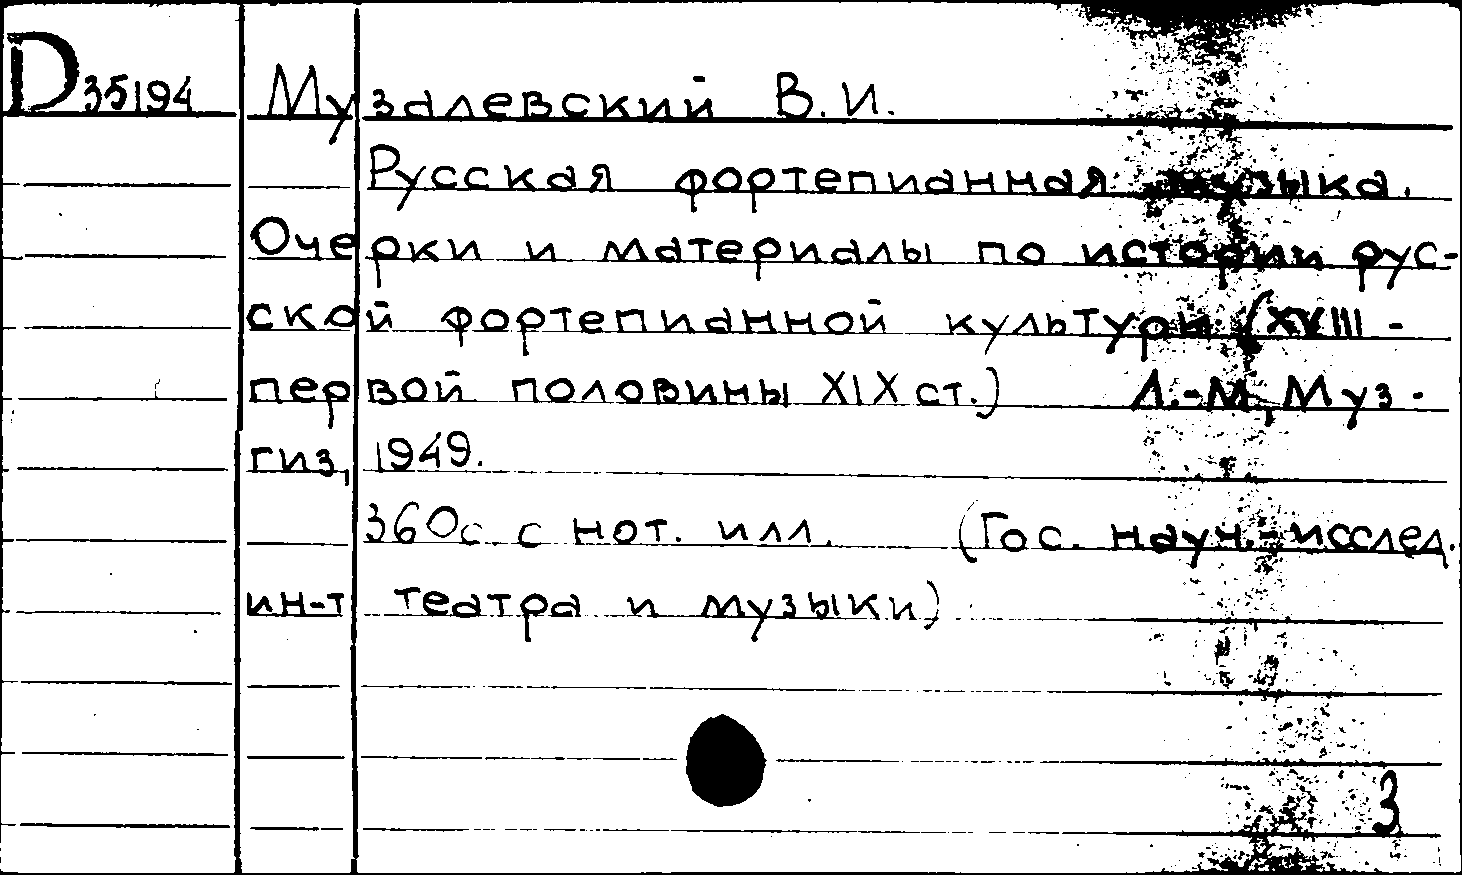 D 35194 Музалевский В.И.
Русская фортепианная музыка.
Очерки и материалы по истории рус-
ской фортепианной культури (XVIII -
первой половины XIX ст.) Л.-М., Муз-
гиз, 1949.
360с. с нот. илл. (Гос. науч.-исслед.
ин-т театра и музыки)
3